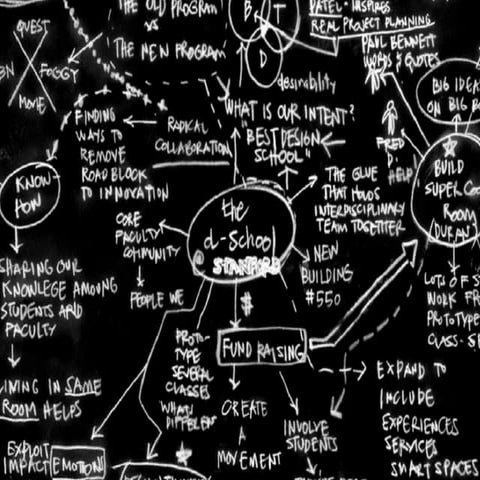 THE OLD PROGRAM
VS
THE NEW PROGRAM
QUEST
FOGGY
MOVIE
B.
T
D
desirability
PATEL - INSPIRES
REAL PROJECT PLANNING
PAUL BENNETT
WORDS & QUOTES
BIG IDEA
ON BIG
FINDING
WAYS TO
REMOVE
ROAD BLOCK
TO INNOVATION
RADICAL
COLLABORATION
WHAT IS OUR INTENT?
"BEST DESIGN
SCHOOL"
FRED
D.
HELP!
BUILD
SUPER COO
ROOM
KNOW-
HOW
THE GLUE
THAT HOLDS
INTERDISCIPLINARY
TEAM TOGETHER
the
d-School
@ STANFORD
CORE
FACULTY
COMMUNITY
PEOPLE WE
NEW
BUILDING
#550
SHARING OUR
KNOWLEGE AMOUNG
STUDENTS AND
FACULTY
LOTS OF S
WORK FR
PROTOTYPE
CLASS-SE
$
FUND RAISING
PROTO-
TYPE
SEVERAL
CLASSES
WHAT
DIFFEREN
CREATE
A
MOVEMENT
INVOLVE
STUDENTS
EXPAND TO
INCLUDE
EXPERIENCES
SERVICES
SMART SPACES
IVING IN SAME
ROOM HELPS
EXPLOIT
IMPACT EMOTION